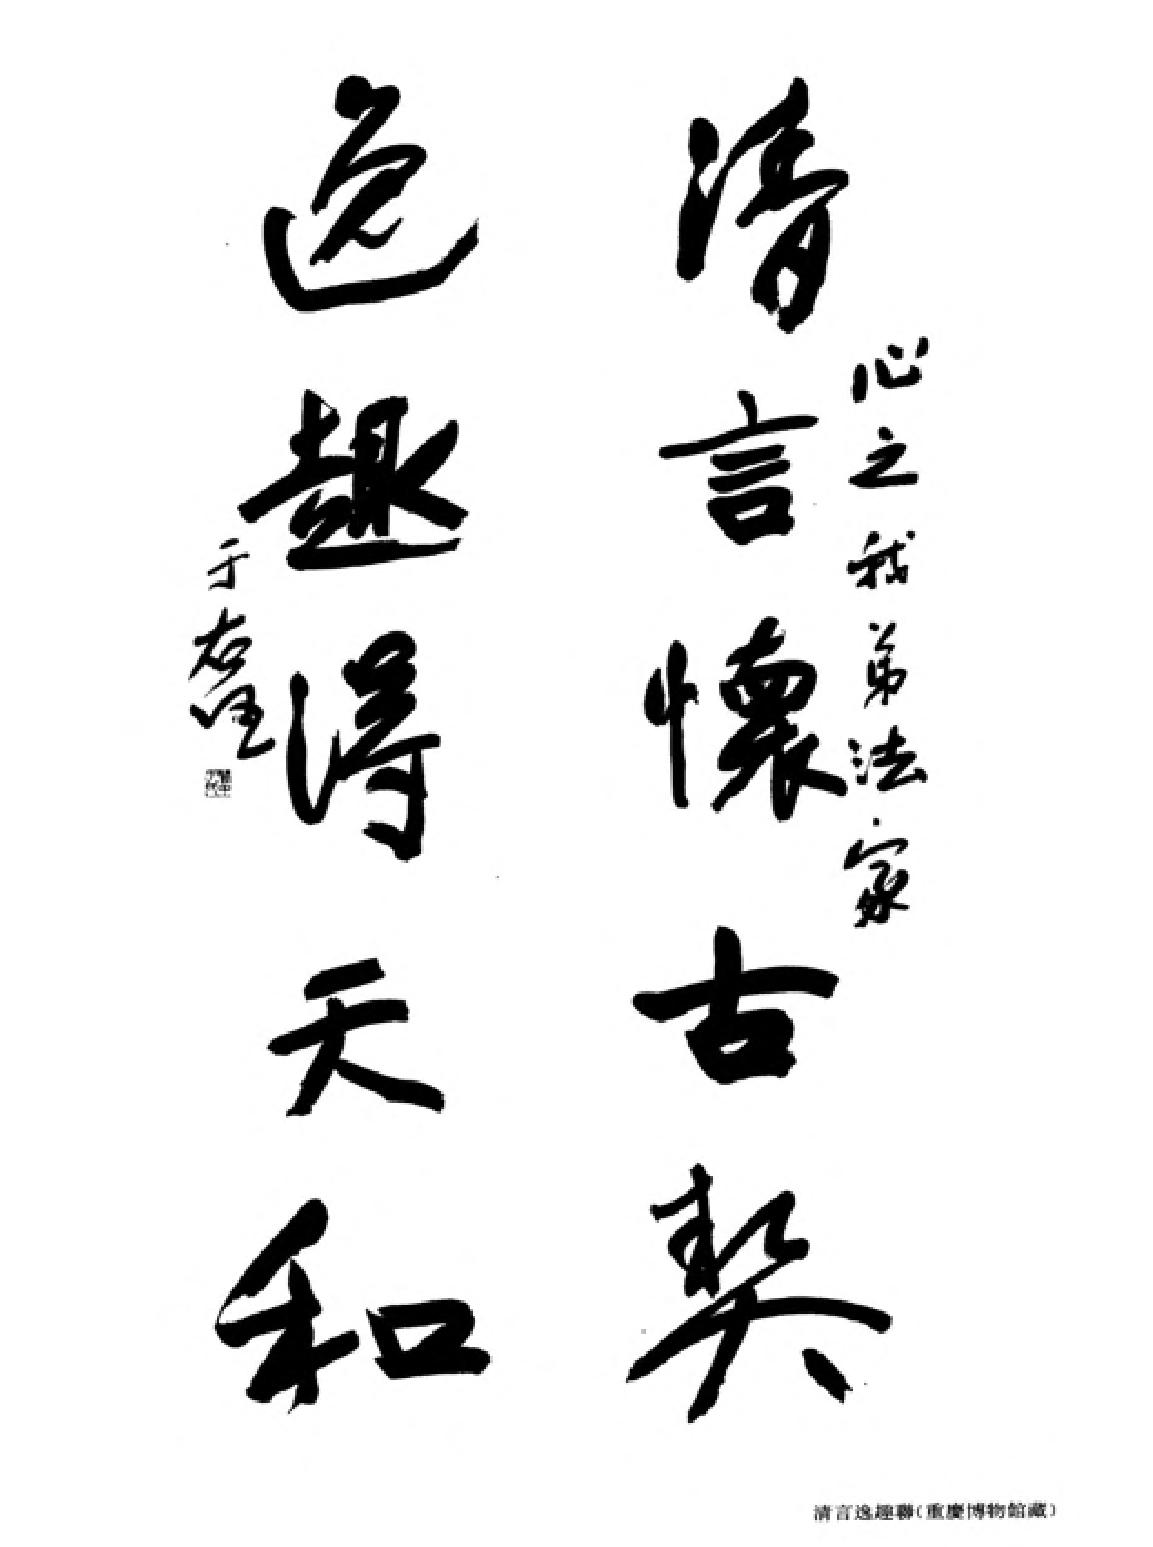 清言懷古契
心之我弟法家
逸趣得天和
于右任
清言逸趣聯(重慶博物館藏)